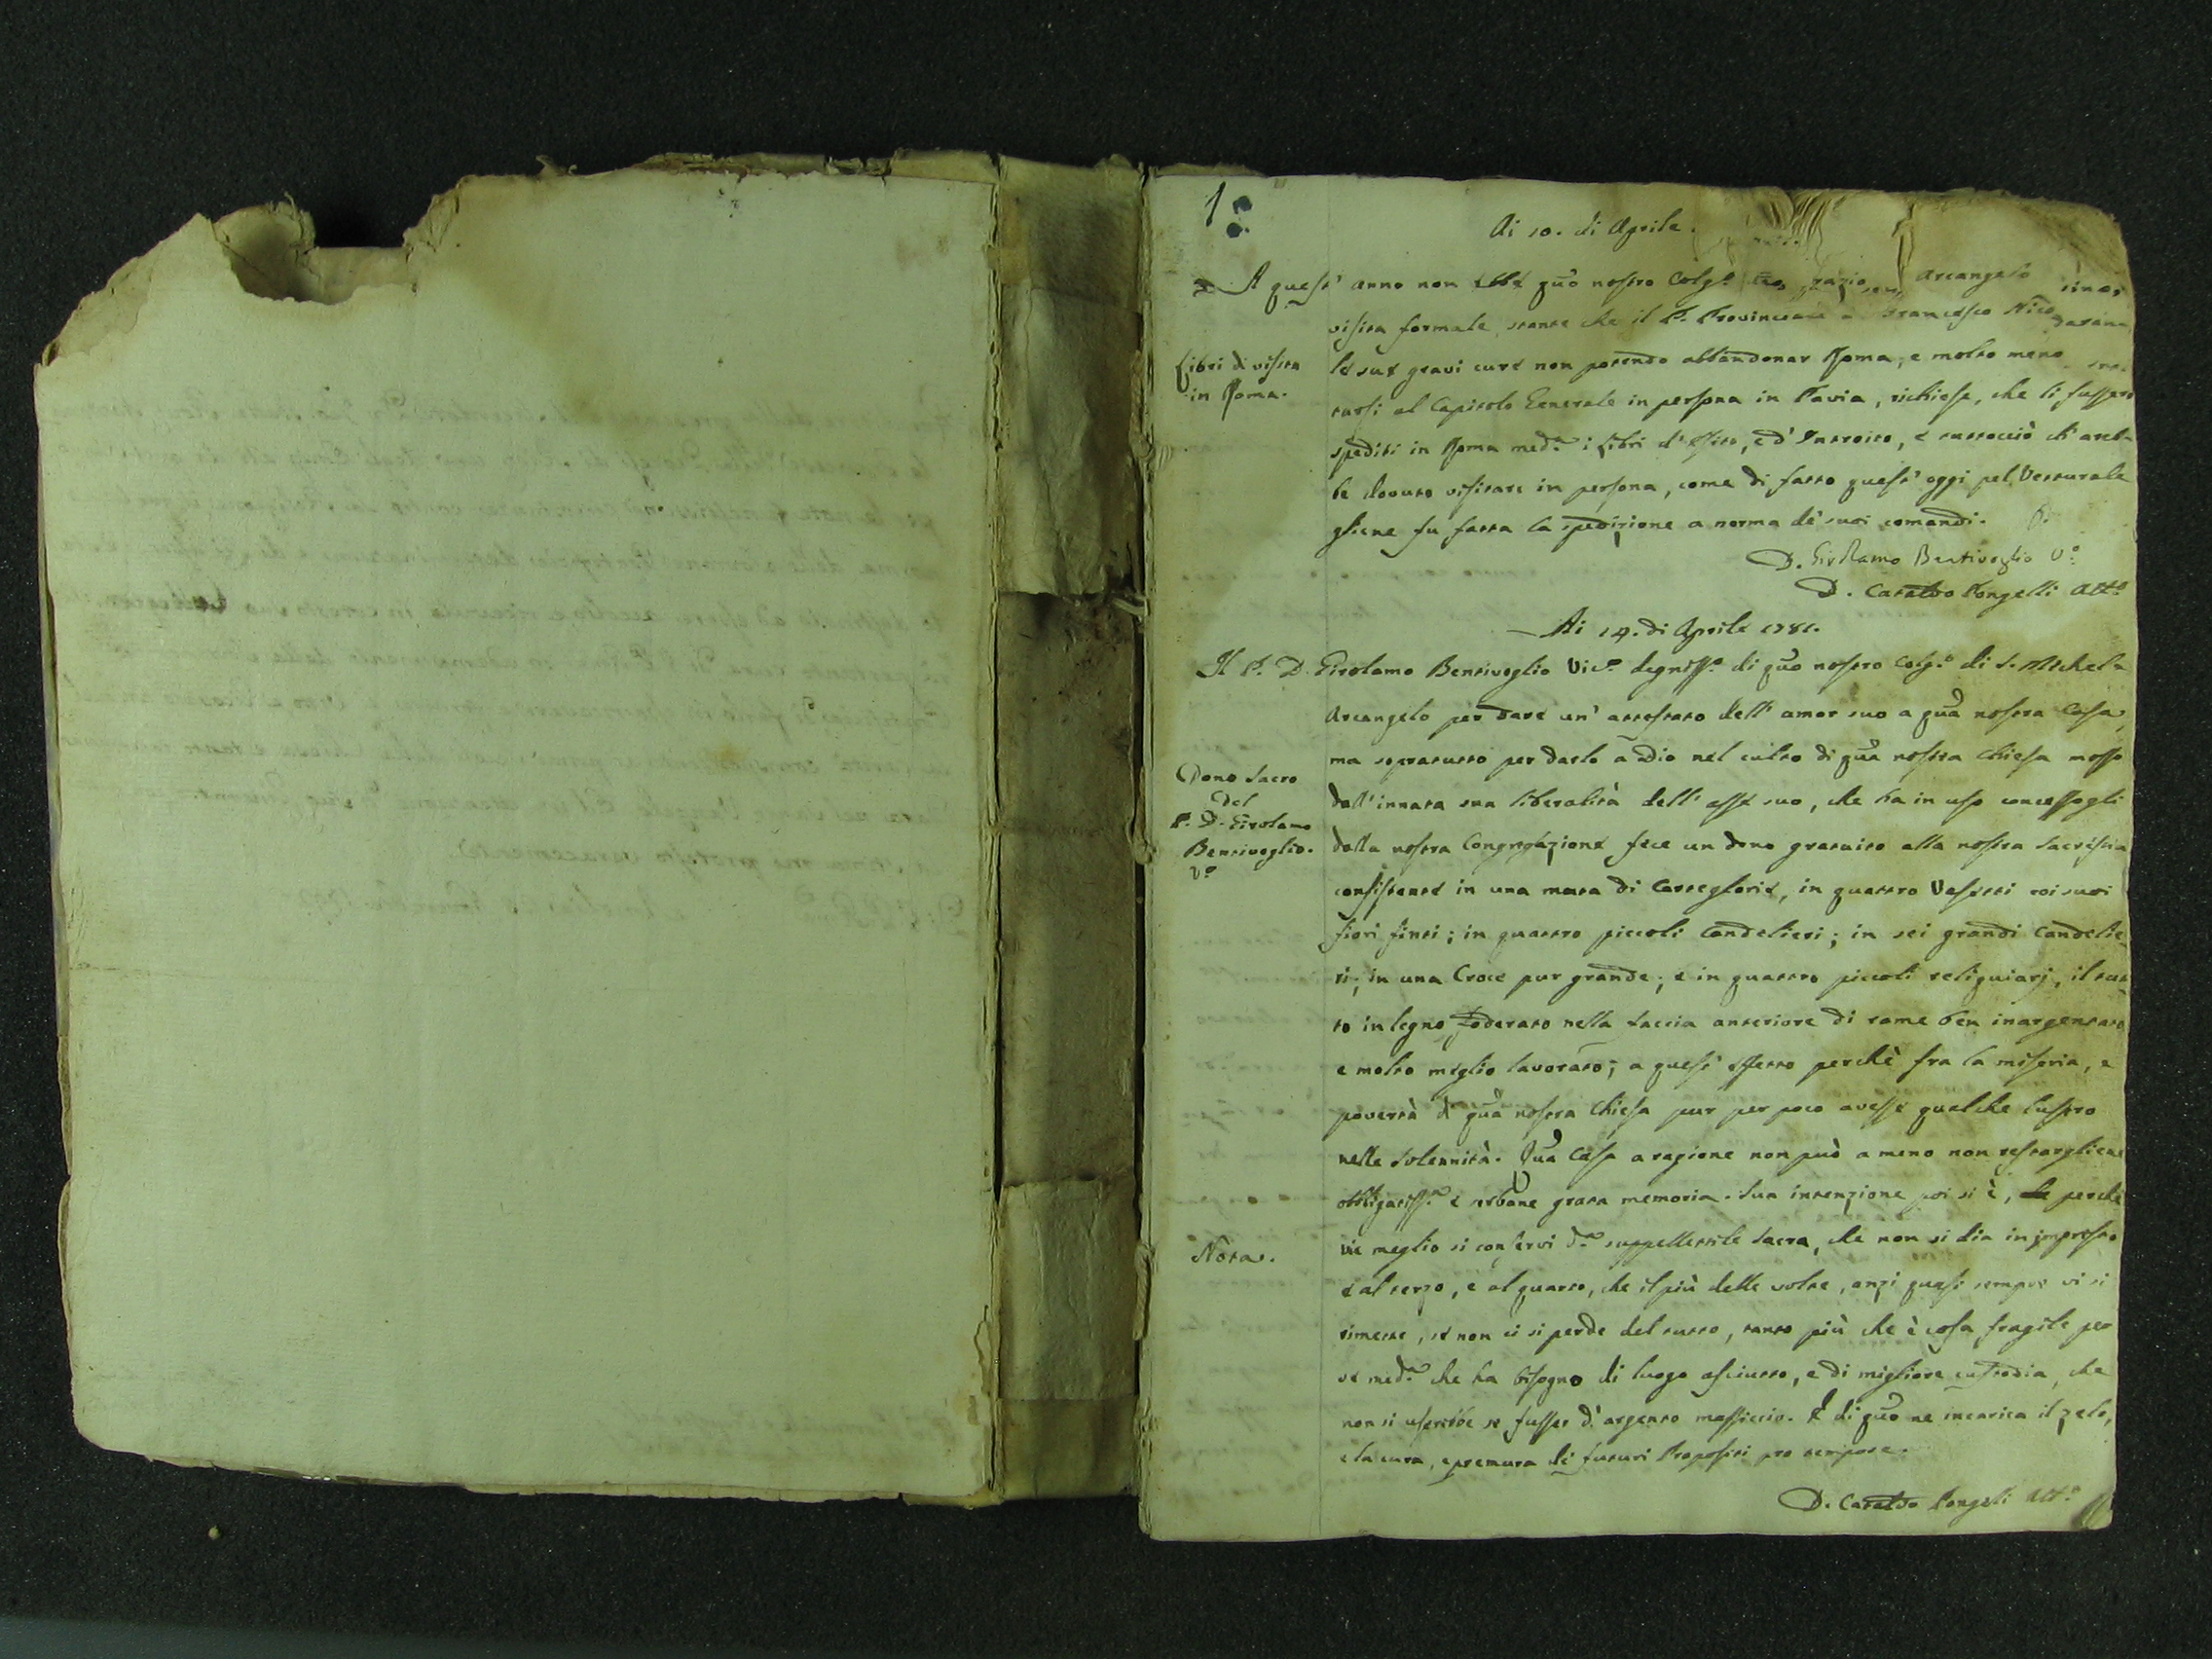 1
Ai 10. di Aprile.
A quest' anno non ebbe qũo nostro Colg.º Arcangelo
visita formale, stante che il P. Provinciale Francesco
le sue gravi cure non potendo abbandonar Roma, e molto meno
Libri di visita
in Roma.
tarsi al Capitolo Generale in persona in Pavia, richiese, che li fussero
spediti in Roma med.ª i Libri d' Esito, e d' Introito, e tuttociò ch' areb-
be dovuto visitare in persona, come di fatto quest' oggi pel Vetturale
gliene fu fatta la spedizione a norma de' suoi comandi.
D. Girolamo Bentivoglio V.º
D. Cataldo Pongelli Att.º
Ai 14. di Aprile 1781.
Il P. D. Girolamo Bentivoglio Vic.º degniss.º di qũo nostro Colg.º di S. Michel-
Arcangelo per dare un' attestato dell' amor suo a qũa nostra Casa,
ma sopratutto per darlo a Dio nel culto di qũa nostra Chiesa mosso
Dono Sacro
del
P. D. Girolamo
Bentivoglio.
V.º
dall' innata sua liberalità dell' asse suo, che ha in uso concessogli
dalla nostra Congregazione fece un dono gratuito alla nostra Sacristia
consistente in una muta di Carteglorie, in quattro Vasetti coi suoi
fiori finti; in quattro piccoli Candelieri; in sei grandi Candelie-
ri; in una Croce pur grande; e in quattro piccoli reliquiarj, il tut-
to in legno foderato nella faccia anteriore di rame ben inargentato
e molto meglio lavorato; a quest' effetto perchè fra la miseria, e
povertà di qũa nostra Chiesa pur per poco avesse qualche lustro
nelle Solennità. Qũa Casa a ragione non può a meno non restargliene
obbligatiss.ª e serbane grata memoria. Sua intenzione poi si è, perchè
Nota.
vie meglio si conservi d.ª suppellettile Sacra, che non si dia in imprestito
e al terzo, e al quarto, che il più delle volte, anzi quasi sempre vi si
rimette, se non ci si perde del tutto, tanto più che è cosa fragile per
se med.ª che ha bisogno di luogo asciutto, e di migliore custodia, che
non si userebbe se fusser d' argento massiccio. E di qũo ne incarica il zelo,
e la cura, e premura de' futuri Propositi pro tempore.
D. Cataldo Pongelli Att.º